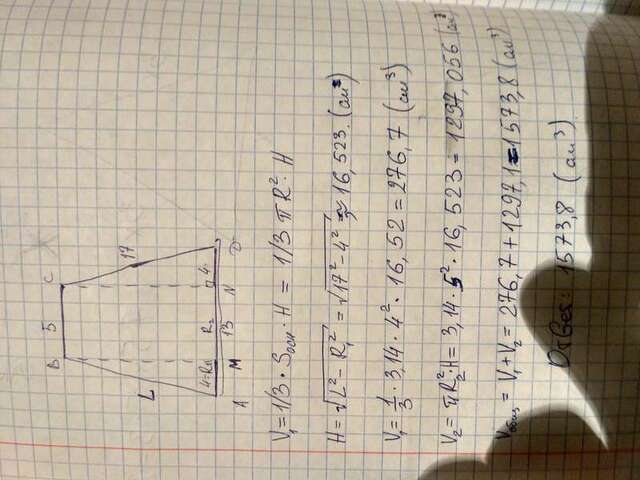 B 5 C
L 17
4=R₁ R₂ 4
A M 13 N D
V₁=1/3·Sосн·H = 1/3 πR²·H
H=√L²-R₁² = √17²-4² ≈ 16,523 (см³)
V₁=1/3·3,14·4²·16,52=276,7 (см³)
V₂=πR₂²·H=3,14·5²·16,523=1297,056 (см³)
Vобщ=V₁+V₂=276,7+1297,1=1573,8 (см³)
Ответ: 1573,8 (см³)